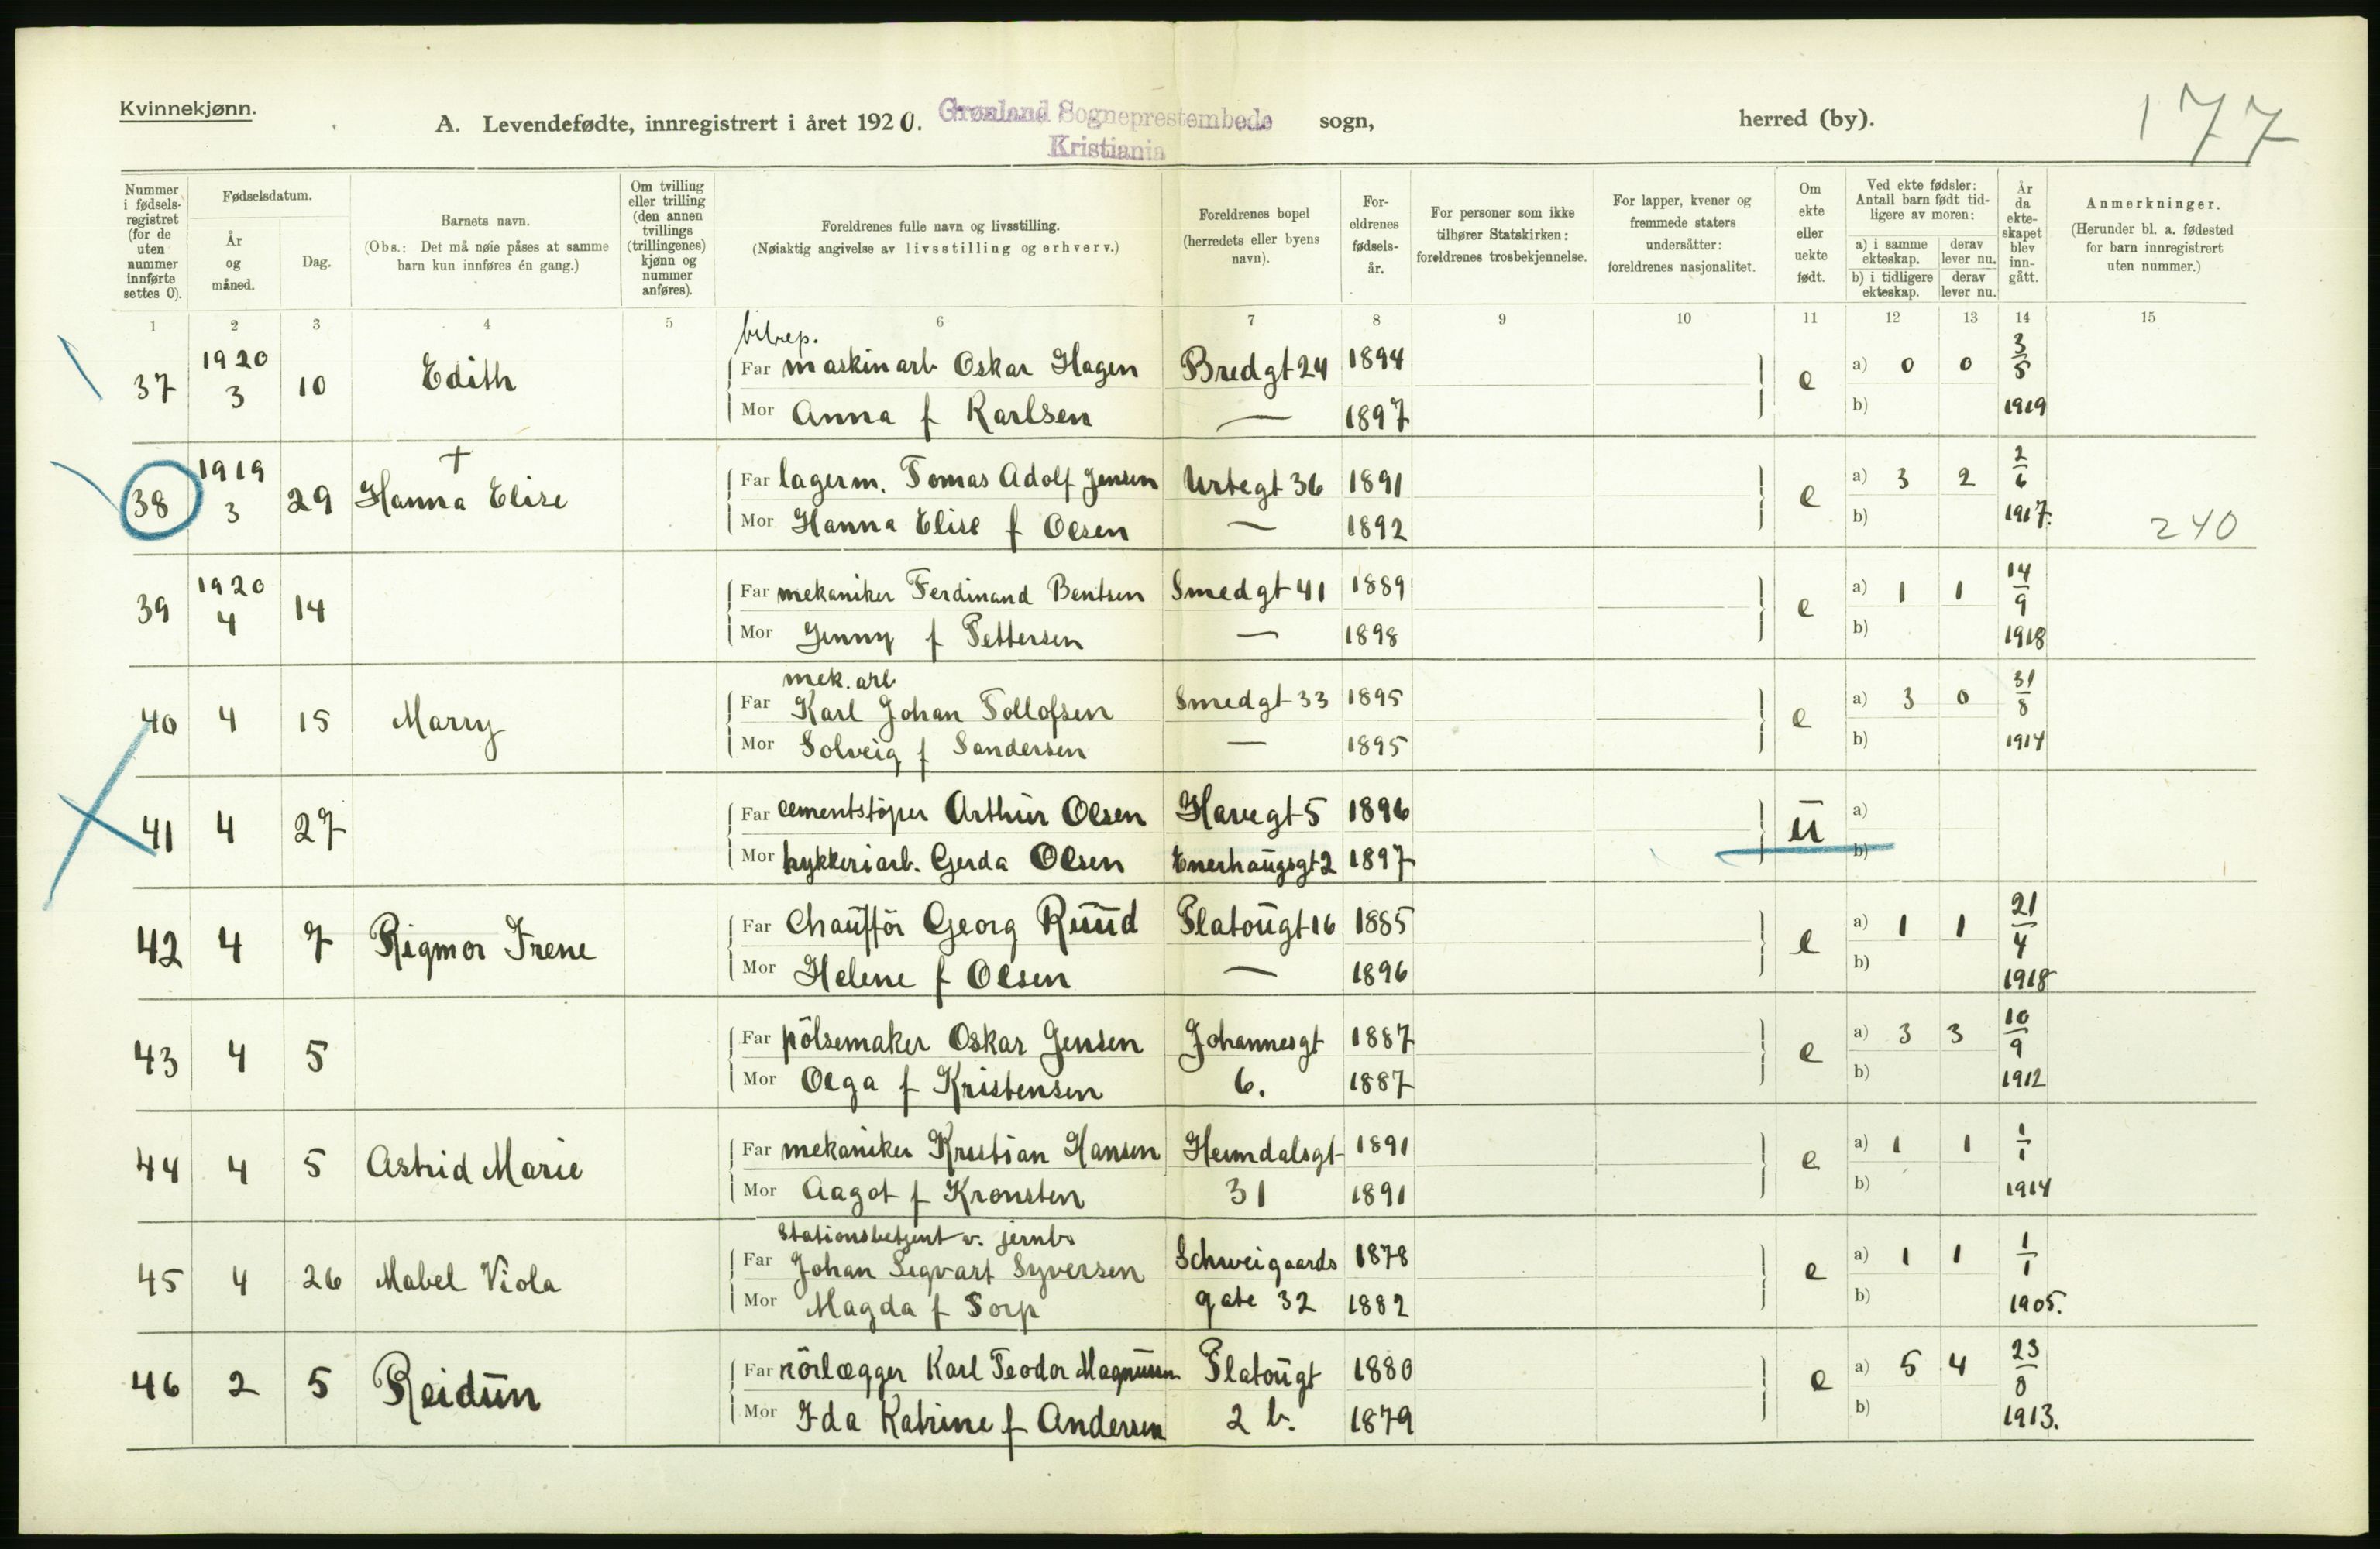 Kvinnekjønn.
A. Levendefødte, innregistrert i året 1920. Grønland Sogneprestembede sogn, herred (by). 177
Kristiania
Nummer i fødsels-registret (for de uten nummer innførte settes 0).
Fødselsdatum.
År og måned.
Dag.
Barnets navn.
(Obs.: Det må nøie påses at samme barn kun innføres én gang.)
Om tvilling eller trilling (den annen tvillings (trillingenes) kjønn og nummer anføres).
Foreldrenes fulle navn og livsstilling.
(Nøiaktig angivelse av livsstilling og erhverv.)
Foreldrenes bopel (herredets eller byens navn).
For-eldrenes fødsels-år.
For personer som ikke tilhører Statskirken: foreldrenes trosbekjennelse.
For lapper, kvener og fremmede staters undersåtter: foreldrenes nasjonalitet.
Om ekte eller uekte født.
Ved ekte fødsler: Antall barn født tid-ligere av moren:
a) i samme ekteskap. derav lever nu.
b) i tidligere ekteskap. derav lever nu.
År da ekte-skapet blev inn-gått.
Anmerkninger.
(Herunder bl. a. fødested for barn innregistrert uten nummer.)
1 2 3 4 5 6 7 8 9 10 11 12 13 14 15
bilrep.
37 1920 3 10 Edith Far maskinarb Oskar Hagen Bredgt 24 1894 e a) 0 0 3/5 1919
Mor Anna f Karlsen — 1897 b)
38 1919 3 29 † Hanna Elise Far lagerm. Tomas Adolf Jensen Urtegt 36 1891 e a) 3 2 2/6 1917.
Mor Hanna Elise f Olsen — 1892 b) 240
39 1920 4 14 Far mekaniker Ferdinand Bentsen Smedgt 41 1889 e a) 1 1 14/9 1918
Mor Jenny f Pettersen — 1898 b)
mek. arb
40 4 15 Marry Far Karl Johan Tollofsen Smedgt 33 1895 e a) 3 0 31/8 1914
Mor Solveig f Sandersen — 1895 b)
41 4 27 Far cementstöper Arthur Olsen Havegt 5 1896 u a)
Mor trykkeriarb. Gerda Olsen Enerhaugsgt 2 1897 b)
42 4 7 Rigmor Irene Far Chauffør Georg Ruud Platougt 16 1885 e a) 1 1 21/4 1918
Mor Helene f Olsen — 1896 b)
43 4 5 Far pölsemaker Oskar Jensen Johannesgt 1887 e a) 3 3 10/9 1912
Mor Olga f Kristensen 6. 1887 b)
44 4 5 Astrid Marie Far mekaniker Kristian Hansen Heimdalsgt 1891 e a) 1 1 1/1 1914
Mor Aagot f Kronsten 31 1891 b)
Stationsbetjent v. jernb
45 4 26 Mabel Viola Far Johan Sigvart Syversen Schweigaards 1878 e a) 1 1 1/1 1905.
Mor Magda f Sorp gate 32 1882 b)
46 2 5 Reidun Far rörlægger Karl Teodor Magnussen Platougt 1880 e a) 5 4 23/8 1913.
Mor Ida Katrine f Andersen 2 b. 1879 b)